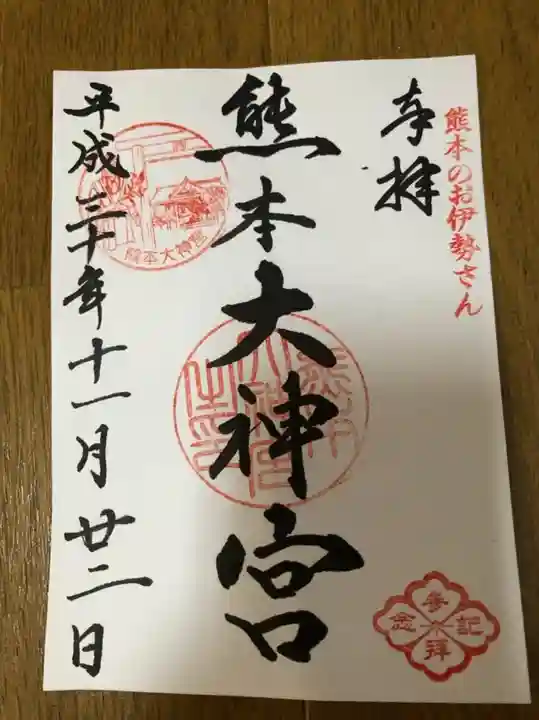 熊本のお伊勢さん
奉拝
熊本大神宮
熊本大神宮
平成三十年十一月廿二日
熊本大神宮
参拝記念